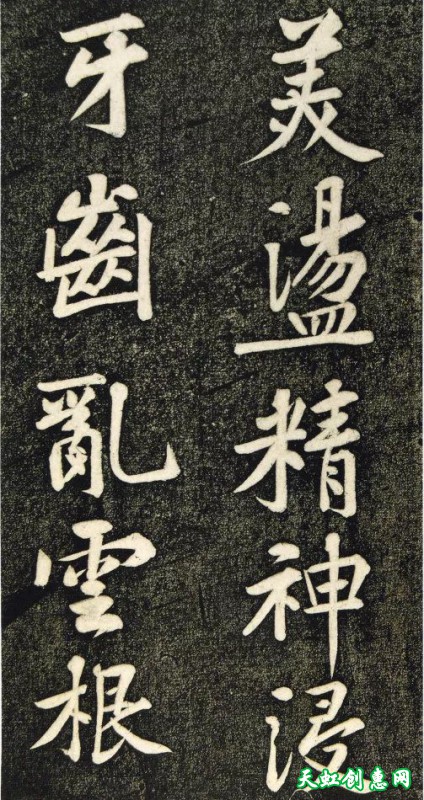 美盪精神浸
牙齒亂雲根
天虹创惠网